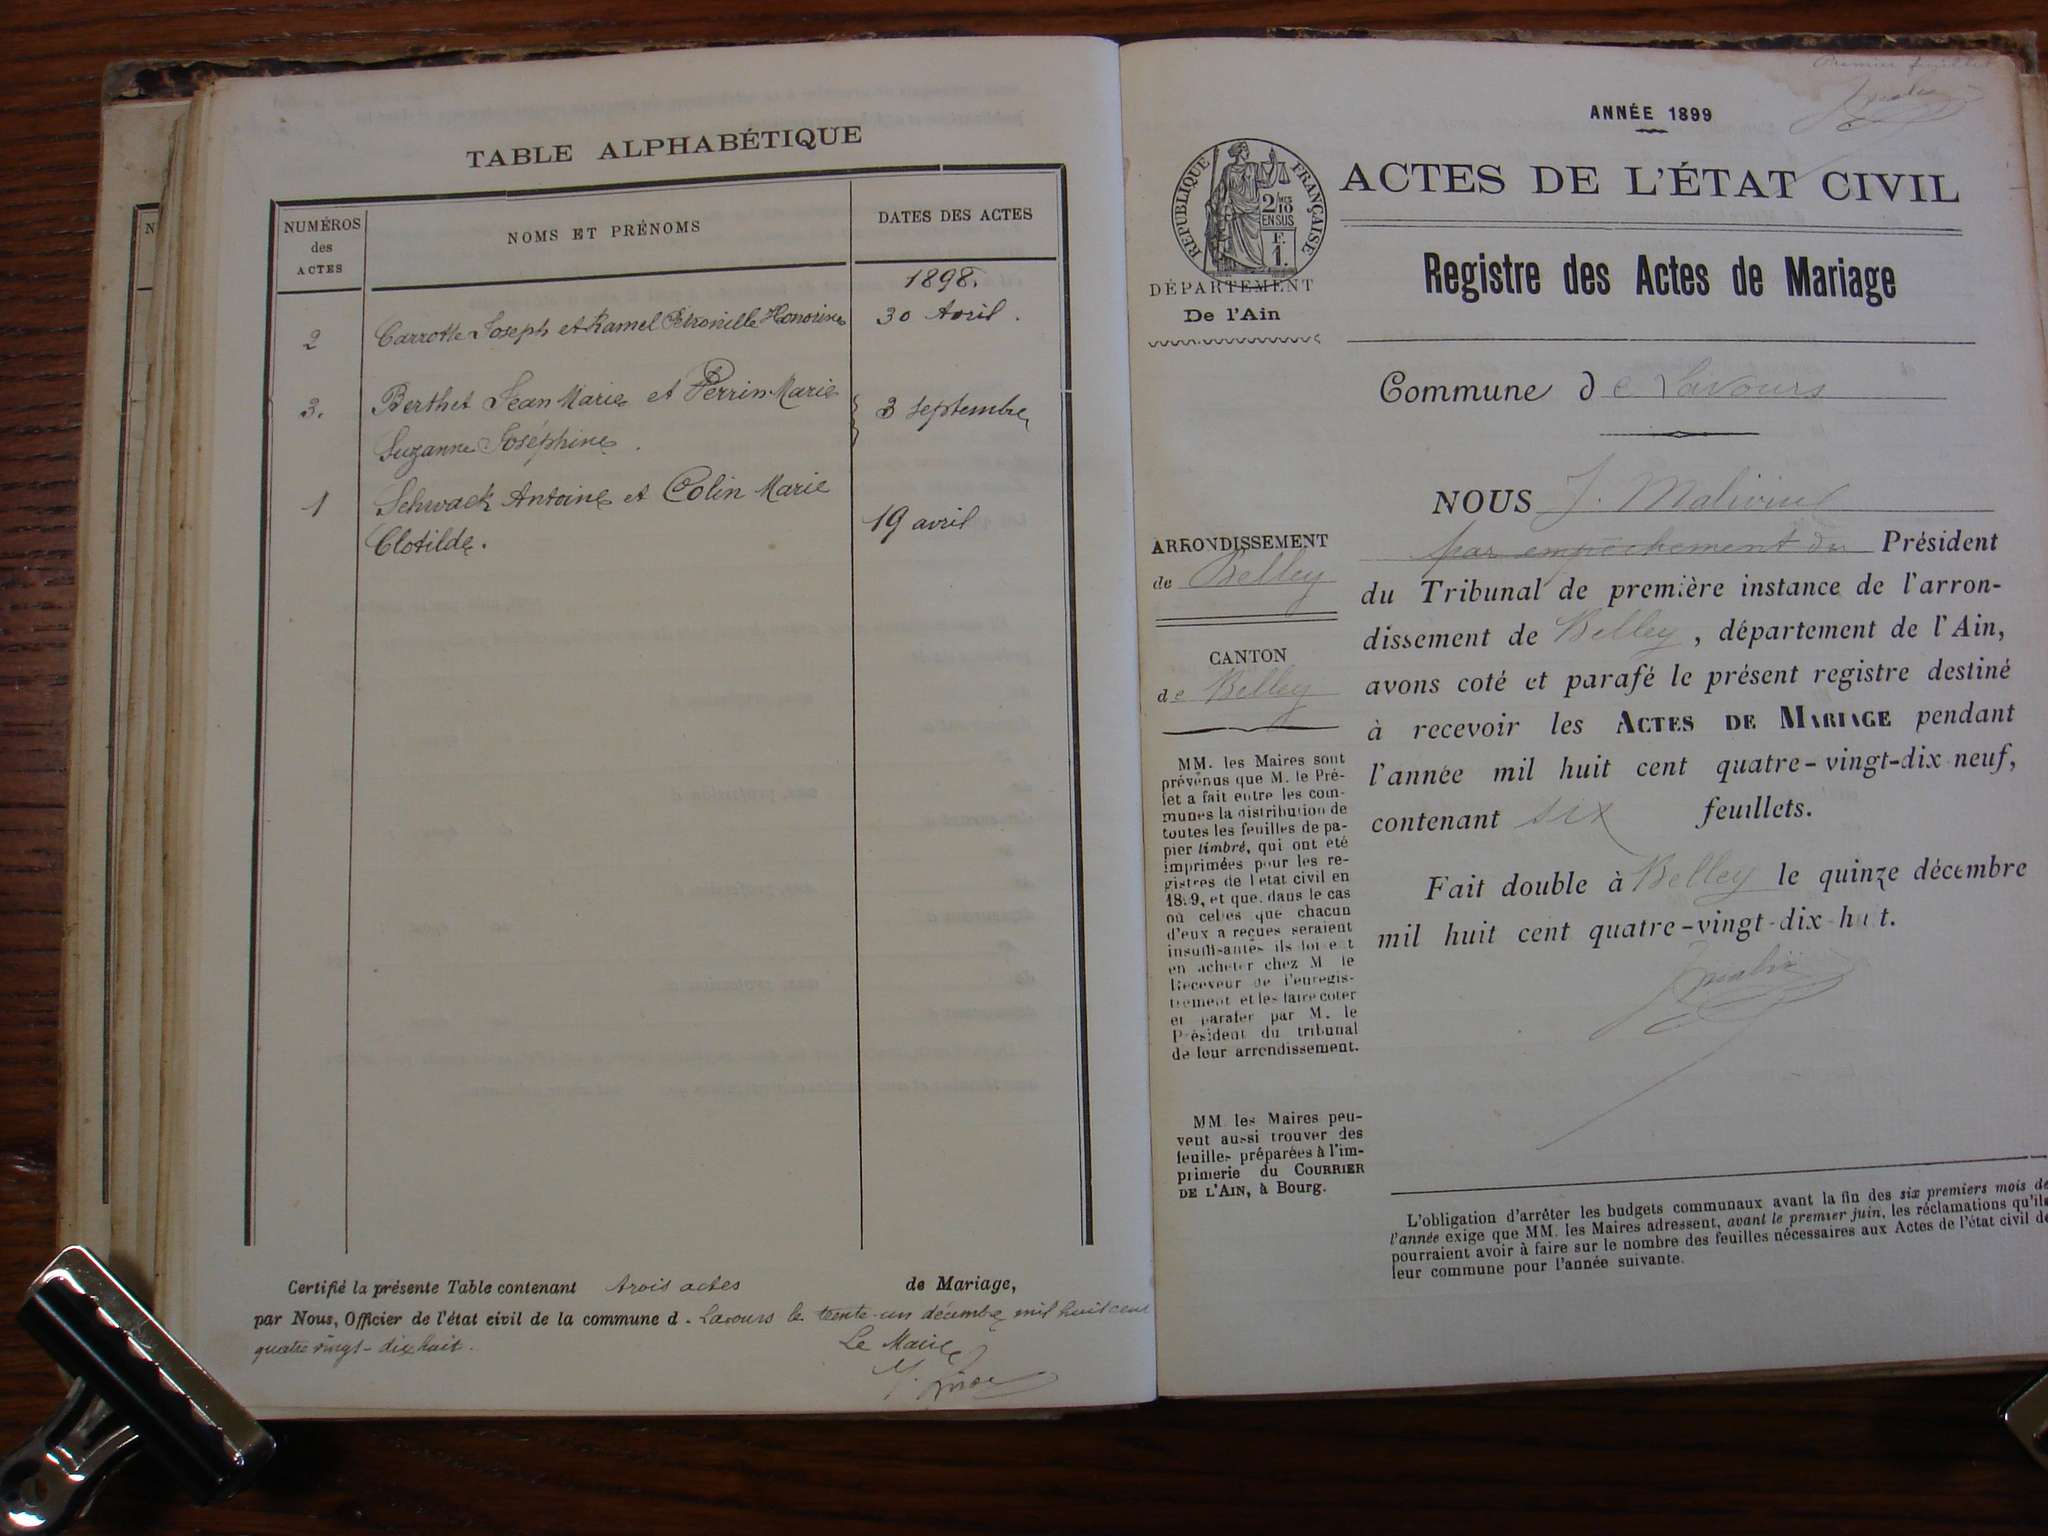 TABLE ALPHABÉTIQUE
NUMÉROS
des
ACTES
NOMS ET PRÉNOMS
DATES DES ACTES
1898.
2 Carrotte Joseph et Ramel Pétronille Honorine 30 Avril.
3. Berthet Jean Marie et Perrin Marie 3 septembre
Suzanne Joséphine.
1 Schwack Antoine et Colin Marie
Clotilde. 19 avril
Certifié la présente Table contenant trois actes de Mariage,
par Nous, Officier de l'état civil de la commune d. Lavours le trente-un décembre mil huit cent
quatre vingt-dix huit.
Le Maire
Premier feuillet
ANNÉE 1899
RÉPUBLIQUE FRANÇAISE
2/10
EN SUS
F.
1.
ACTES DE L'ÉTAT CIVIL
DÉPARTEMENT
De l'Ain
Registre des Actes de Mariage
Commune de Lavours
NOUS J.
par empêchement du Président
du Tribunal de première instance de l'arron-
dissement de Belley, département de l'Ain,
avons coté et parafé le présent registre destiné
à recevoir les ACTES DE MARIAGE pendant
l'année mil huit cent quatre-vingt-dix neuf,
contenant six feuillets.
Fait double à Belley le quinze décembre
mil huit cent quatre-vingt-dix-huit.
ARRONDISSEMENT
de Belley
CANTON
de Belley
MM. les Maires sont
prévenus que M. le Pré-
fet a fait entre les com-
munes la distribution de
toutes les feuilles de pa-
pier timbré, qui ont été
imprimées pour les re-
gistres de l'état civil en
1899, et que, dans le cas
où celles que chacun
d'eux a reçues seraient
insuffisantes ils doivent
en acheter chez M. le
Receveur de l'enregis-
trement et les faire coter
et parafer par M. le
Président du tribunal
de leur arrondissement.
MM. les Maires peu-
vent aussi trouver des
feuilles préparées à l'im-
primerie du COURRIER
DE L'AIN, à Bourg.
L'obligation d'arrêter les budgets communaux avant la fin des six premiers mois de
l'année exige que MM. les Maires adressent, avant le premier juin, les réclamations qu'ils
pourraient avoir à faire sur le nombre des feuilles nécessaires aux Actes de l'état civil de
leur commune pour l'année suivante.